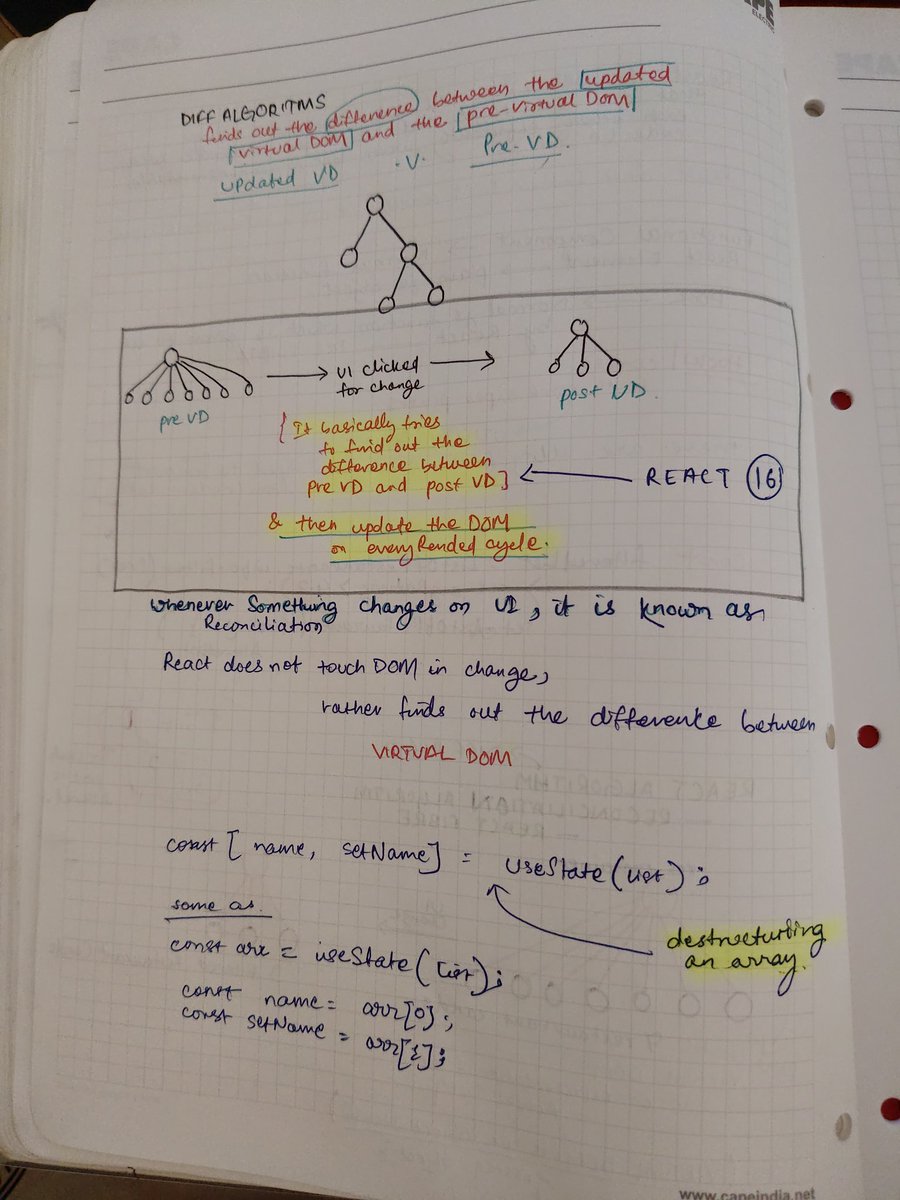 DIFF ALGORITMS
finds out the difference between the updated
virtual DOM and the pre-virtual DOM
updated VD .V. Pre-VD.
UI clicked
for change
pre VD
post VD.
{It basically tries
to find out the
difference between
pre VD and post VD}
REACT 16
& then update the DOM
on every Rended cycle.
whenever Something changes on UI, it is known as
Reconciliation
React does not touch DOM in change,
rather finds out the difference between
VIRTUAL DOM
const [name, setName] = useState(list);
same as.
destructuring
an array.
const arr = useState(list);
const name = arr[0];
const setName = arr[1];
www.capeindia.net